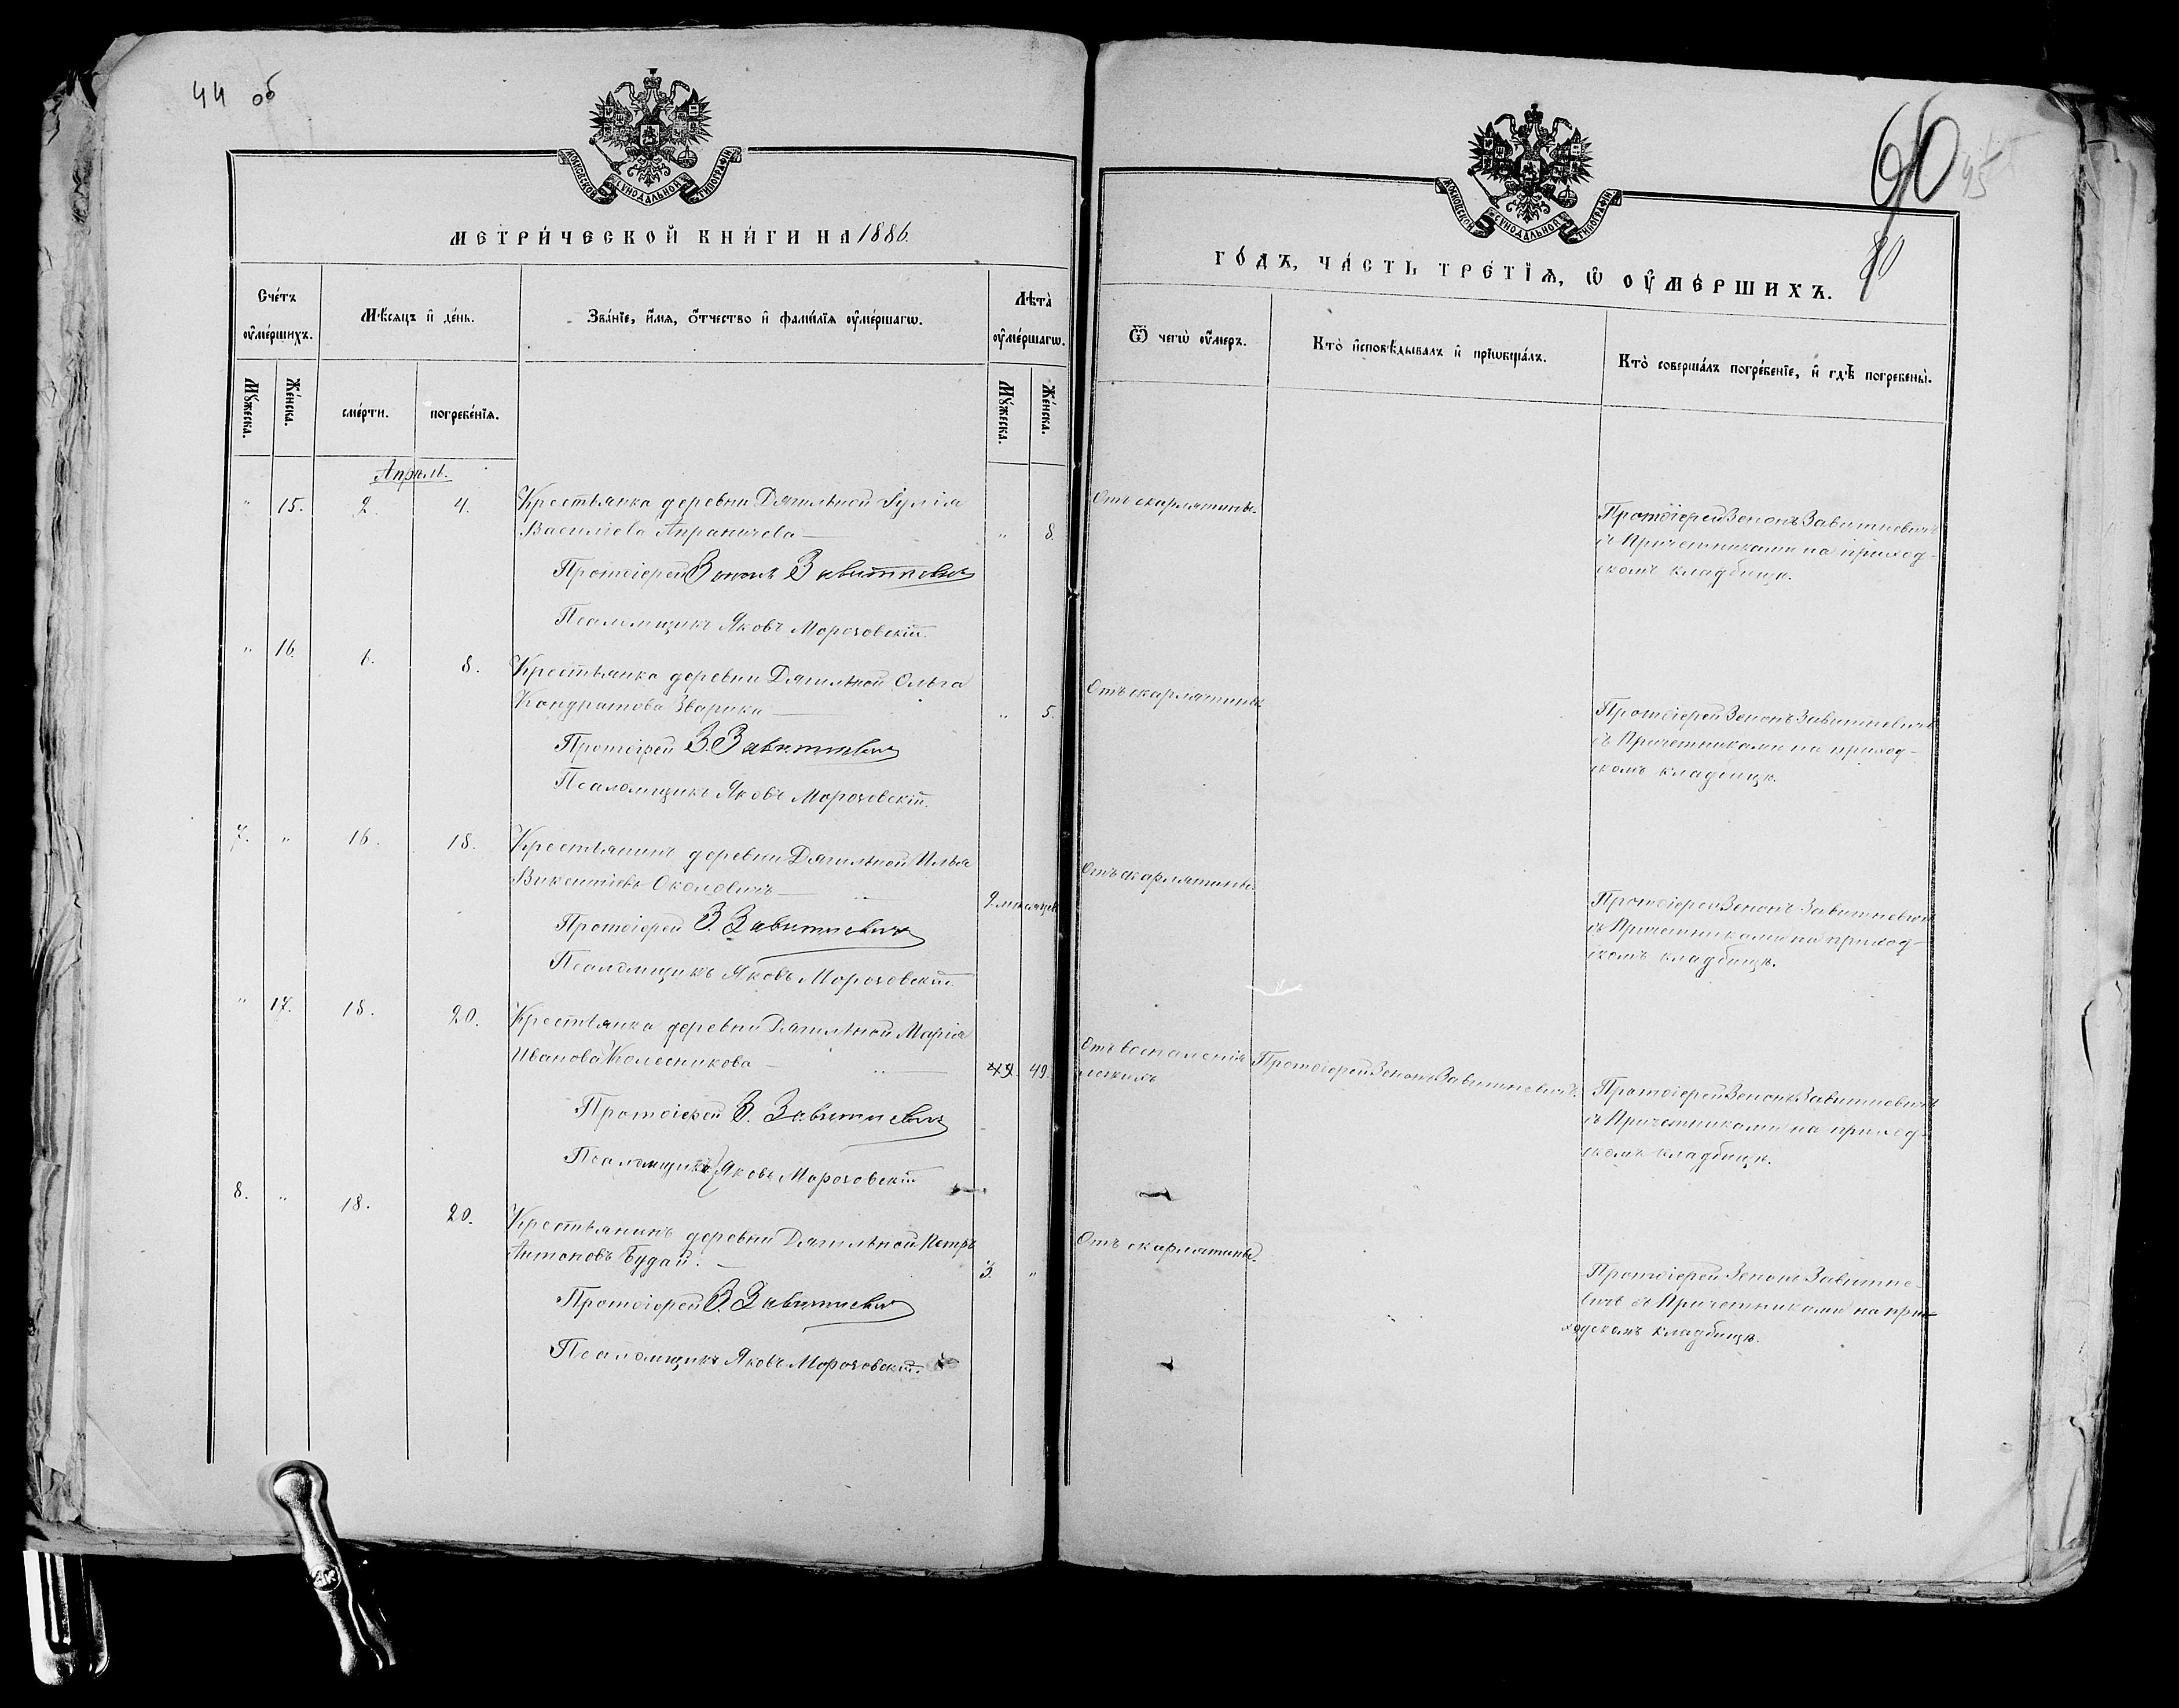 44 об
МОСКОВСКОЙ СѴНОДАЛЬНОЙ ТИПОГРАФІИ
МЕТРИ́ЧЕСКОЙ КНИ́ГИ НА 1886.
Сче́тъ ᲂу҆ме́ршихъ.
Мѣ́сѧцъ и҆ де́нь.
Зва́нїе, и҆́мѧ, ѻ҆́тчество и҆ фами́лїѧ ᲂу҆ме́ршагѡ.
Лѣ́та ᲂу҆ме́ршагѡ.
Мꙋ́жеска.
Же́нска.
сме́рти.
погребе́нїѧ.
Мꙋ́жеска.
Же́нска.
Апрѣль.
" 15. 2. 4. Крестьянка деревни Дягильной Іулія
Васильева 8.
Протоіерей Зенонъ Завитневичъ
Псаломщикъ Яковъ Мороховскій.
" 16. 6. 8. Крестьянка деревни Дягильной Ольга
Кондратова Зварика " 5.
Протоіерей З. Завитневичъ
Псаломщикъ Яковъ Мороховскій.
7. " 16. 18. Крестьянинъ деревни Дягильной Илья
Викентіевъ Околовичъ 2 мѣсяцевъ
Протоіерей З. Завитневичъ
Псаломщикъ Яковъ Мороховскій.
" 17. 18. 20. Крестьянка деревни Дягильной Марія
Иванова Колесникова 49. 49.
Протоіерей З. Завитневичъ
Псаломщикъ Яковъ Мороховскій
8. " 18. 20. Крестьянинъ деревни Дягильной Петръ
Антоновъ Будай. 3. "
Протоіерей З. Завитневичъ
Псаломщикъ Яковъ Мороховскій.
45
80
МОСКОВСКОЙ СѴНОДАЛЬНОЙ ТИПОГРАФІИ
ГО́ДЪ, ЧА́СТЬ ТРЕ́ТЇѦ, Ѡ҆ ОУ҆МЕ́РШИХЪ.
Ѿ чегѡ̀ ᲂу҆́меръ.
Кто̀ и҆сповѣ́дывалъ и҆ прїѡбща́лъ.
Кто̀ соверша́лъ погребе́нїе, и҆ гдѣ̀ погребены̀.
Отъ скарлятины.
Протоіерей Зенонъ Завитневичъ
съ Причетниками на приход-
скомъ кладбищѣ.
Отъ скарлятины
Протоіерей Зенонъ Завитневичъ
съ Причетниками на приход-
скомъ кладбищѣ.
Отъ скарлятины.
Протоіерей Зенонъ Завитневичъ
съ Причетниками на приход-
скомъ кладбищѣ.
Отъ воспаленія
легкихъ
Протоіерей Зенонъ Завитневичъ.
Протоіерей Зенонъ Завитневичъ
съ Причетниками на приход-
скомъ кладбищѣ.
Отъ скарлятины.
Протоіерей Зенонъ Завитне-
вичъ съ Причетниками на при-
ходскомъ кладбищѣ.